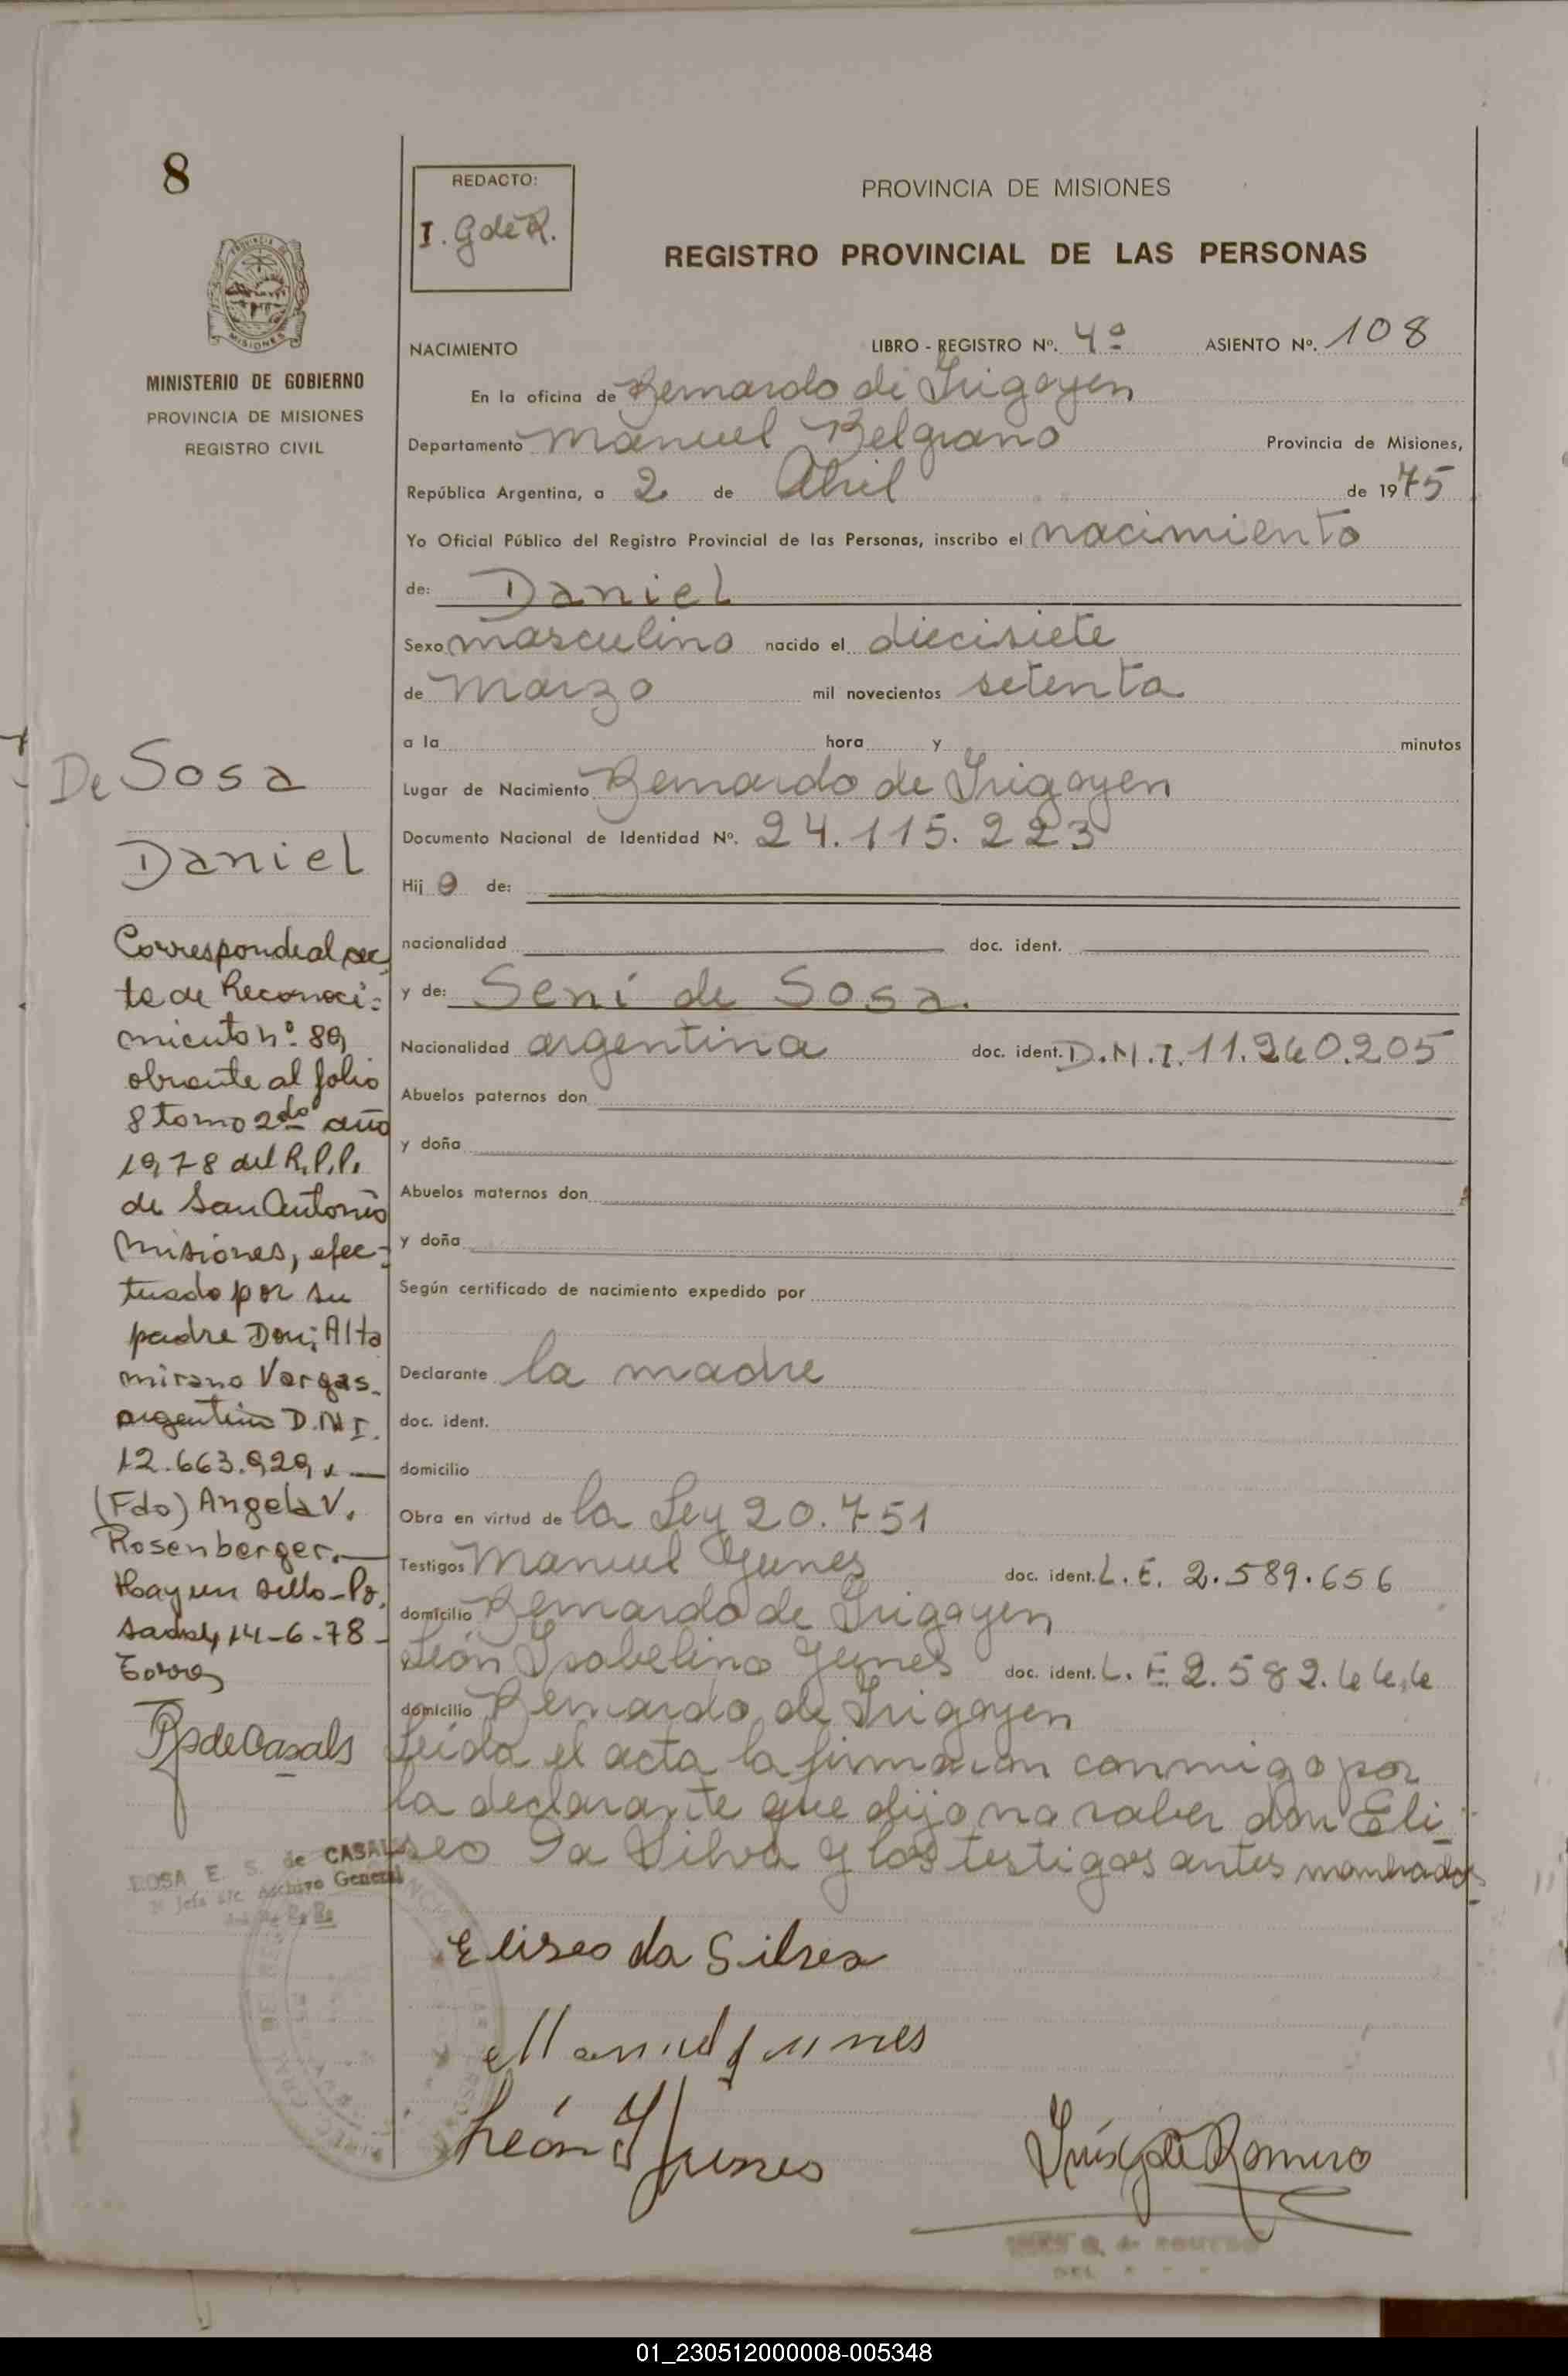 8
MINISTERIO DE GOBIERNO
PROVINCIA DE MISIONES
REGISTRO CIVIL
REDACTO:
I. G de R.
PROVINCIA DE MISIONES
REGISTRO PROVINCIAL DE LAS PERSONAS
NACIMIENTO LIBRO - REGISTRO Nº. 4º ASIENTO Nº. 108
En la oficina de Bernardo de Irigoyen
Departamento Manuel Belgrano Provincia de Misiones,
República Argentina, a 2 de Abril de 1975
Yo Oficial Público del Registro Provincial de las Personas, inscribo el nacimiento
de: Daniel
Sexo masculino nacido el diecisiete
de marzo mil novecientos setenta
a la hora y minutos
Lugar de Nacimiento Bernardo de Irigoyen
Documento Nacional de Identidad Nº. 24.115.223
Hij o de:
nacionalidad doc. ident.
y de: Seni de Sosa.
Nacionalidad argentina doc. ident. D.N.I. 11.260.205
Abuelos paternos don
y doña
Abuelos maternos don
y doña
Según certificado de nacimiento expedido por
Declarante la madre
doc. ident.
domicilio
Obra en virtud de la Ley 20.751
Testigos Manuel Yunes doc. ident. L.E. 2.589.656
domicilio Bernardo de Irigoyen
León Isabelino Yunes doc. ident. L.E. 2.582.666
domicilio Bernardo de Irigoyen
Leída el acta la firmaron conmigo por
la declarante que dijo no saber don Eli
seo Da Silva y los testigos antes nombrados
De Sosa
Daniel
Corresponde al ac
ta de Reconoci=
miento nº 89
obrante al folio
8 tomo 2do año
1978 del R.P.P.
de San Antonio
Misiones, efec-
tuado por su
padre Don; Alta
mirano Vargas.
argentino D.N.I.
12.663.929.—
(Fdo) Angela V.
Rosenberger.—
Hay un sello-Po.
sadas, 14-6-78-
RpdeCasals
ROSA E. S. de CASALS
Jefa Archivo General
Eliseo da Silva
Manuel Yunes
León I Yunes
G de Romero
01_230512000008-005348